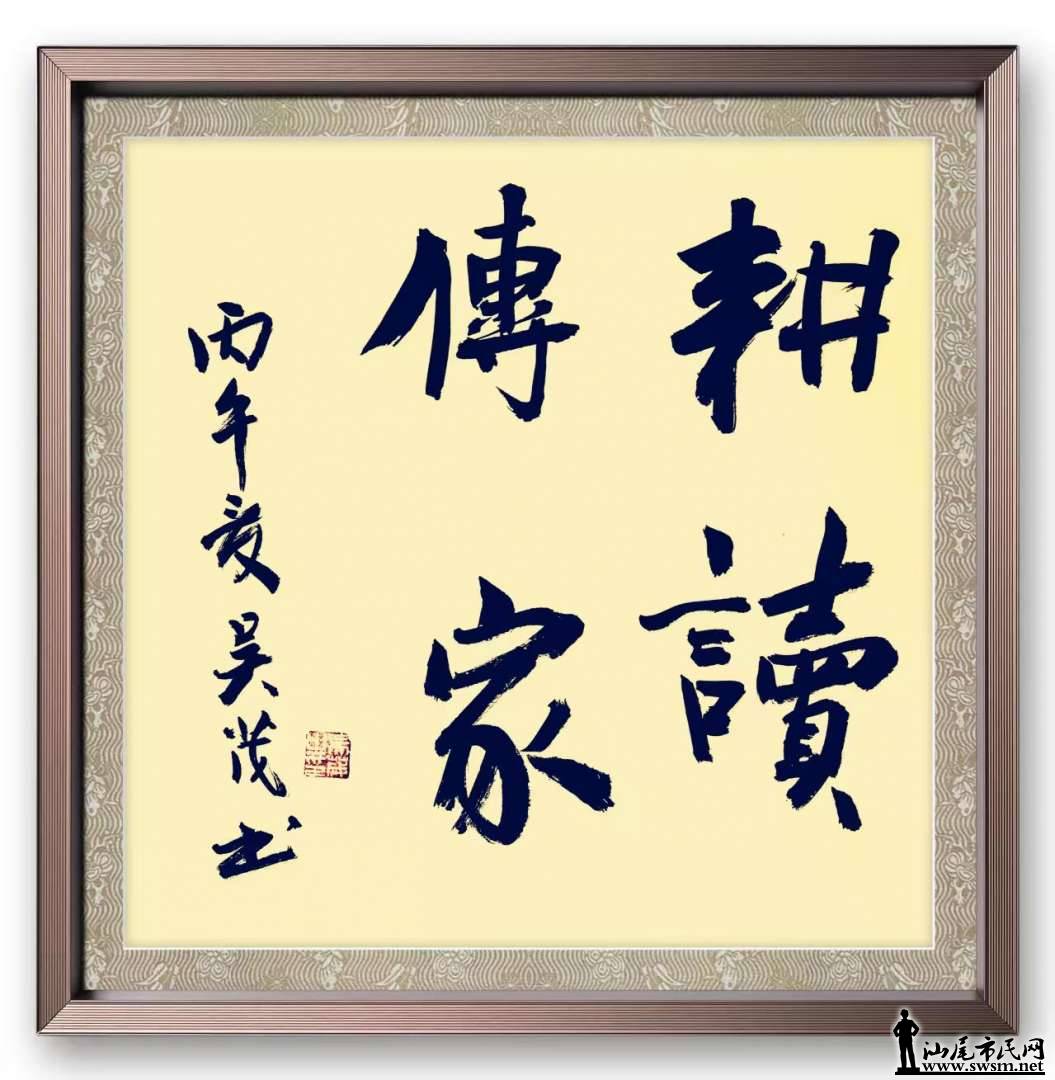 耕讀
傳家
丙午夏吴茂书
汕尾市民网
www.swsm.net